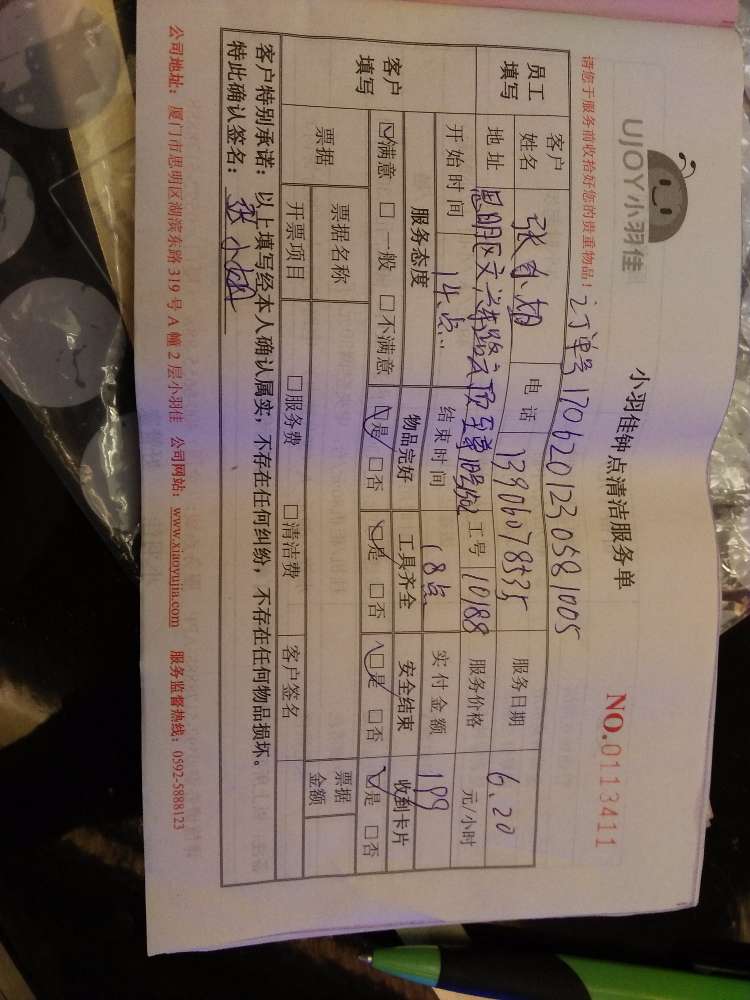 UJOY小羽佳
小羽佳钟点清洁服务单
NO.0113411
请您于服务前收拾好您的贵重物品！
订单号1706201230581005
员工填写 客户姓名 张小姐 电话 13906078535 服务日期 6.20
地址 思明区文 路 至尊 工号 10188 服务价格 元/小时
开始时间 14点 结束时间 18点 实付金额 199
客户填写 服务态度 物品完好 工具齐全 安全结束 收到卡片
☑满意 □一般 □不满意 ☑是 □否 ☑是 □否 ☑是 □否 ☑是 □否
票据 票据名称 票据金额
开票项目 □服务费 □清洁费 客户签名
客户特别承诺：以上填写经本人确认属实，不存在任何纠纷，不存在任何物品损坏。
特此确认签名：张小姐
公司地址：厦门市思明区湖滨东路319号A幢2层小羽佳 公司网站：www.xiaoyujia.com 服务监督热线：0592-5888123